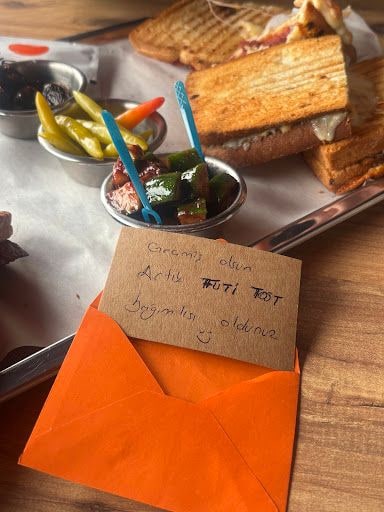 Geçmiş olsun
Artık FUTİ TOST
bağımlısı oldunuz